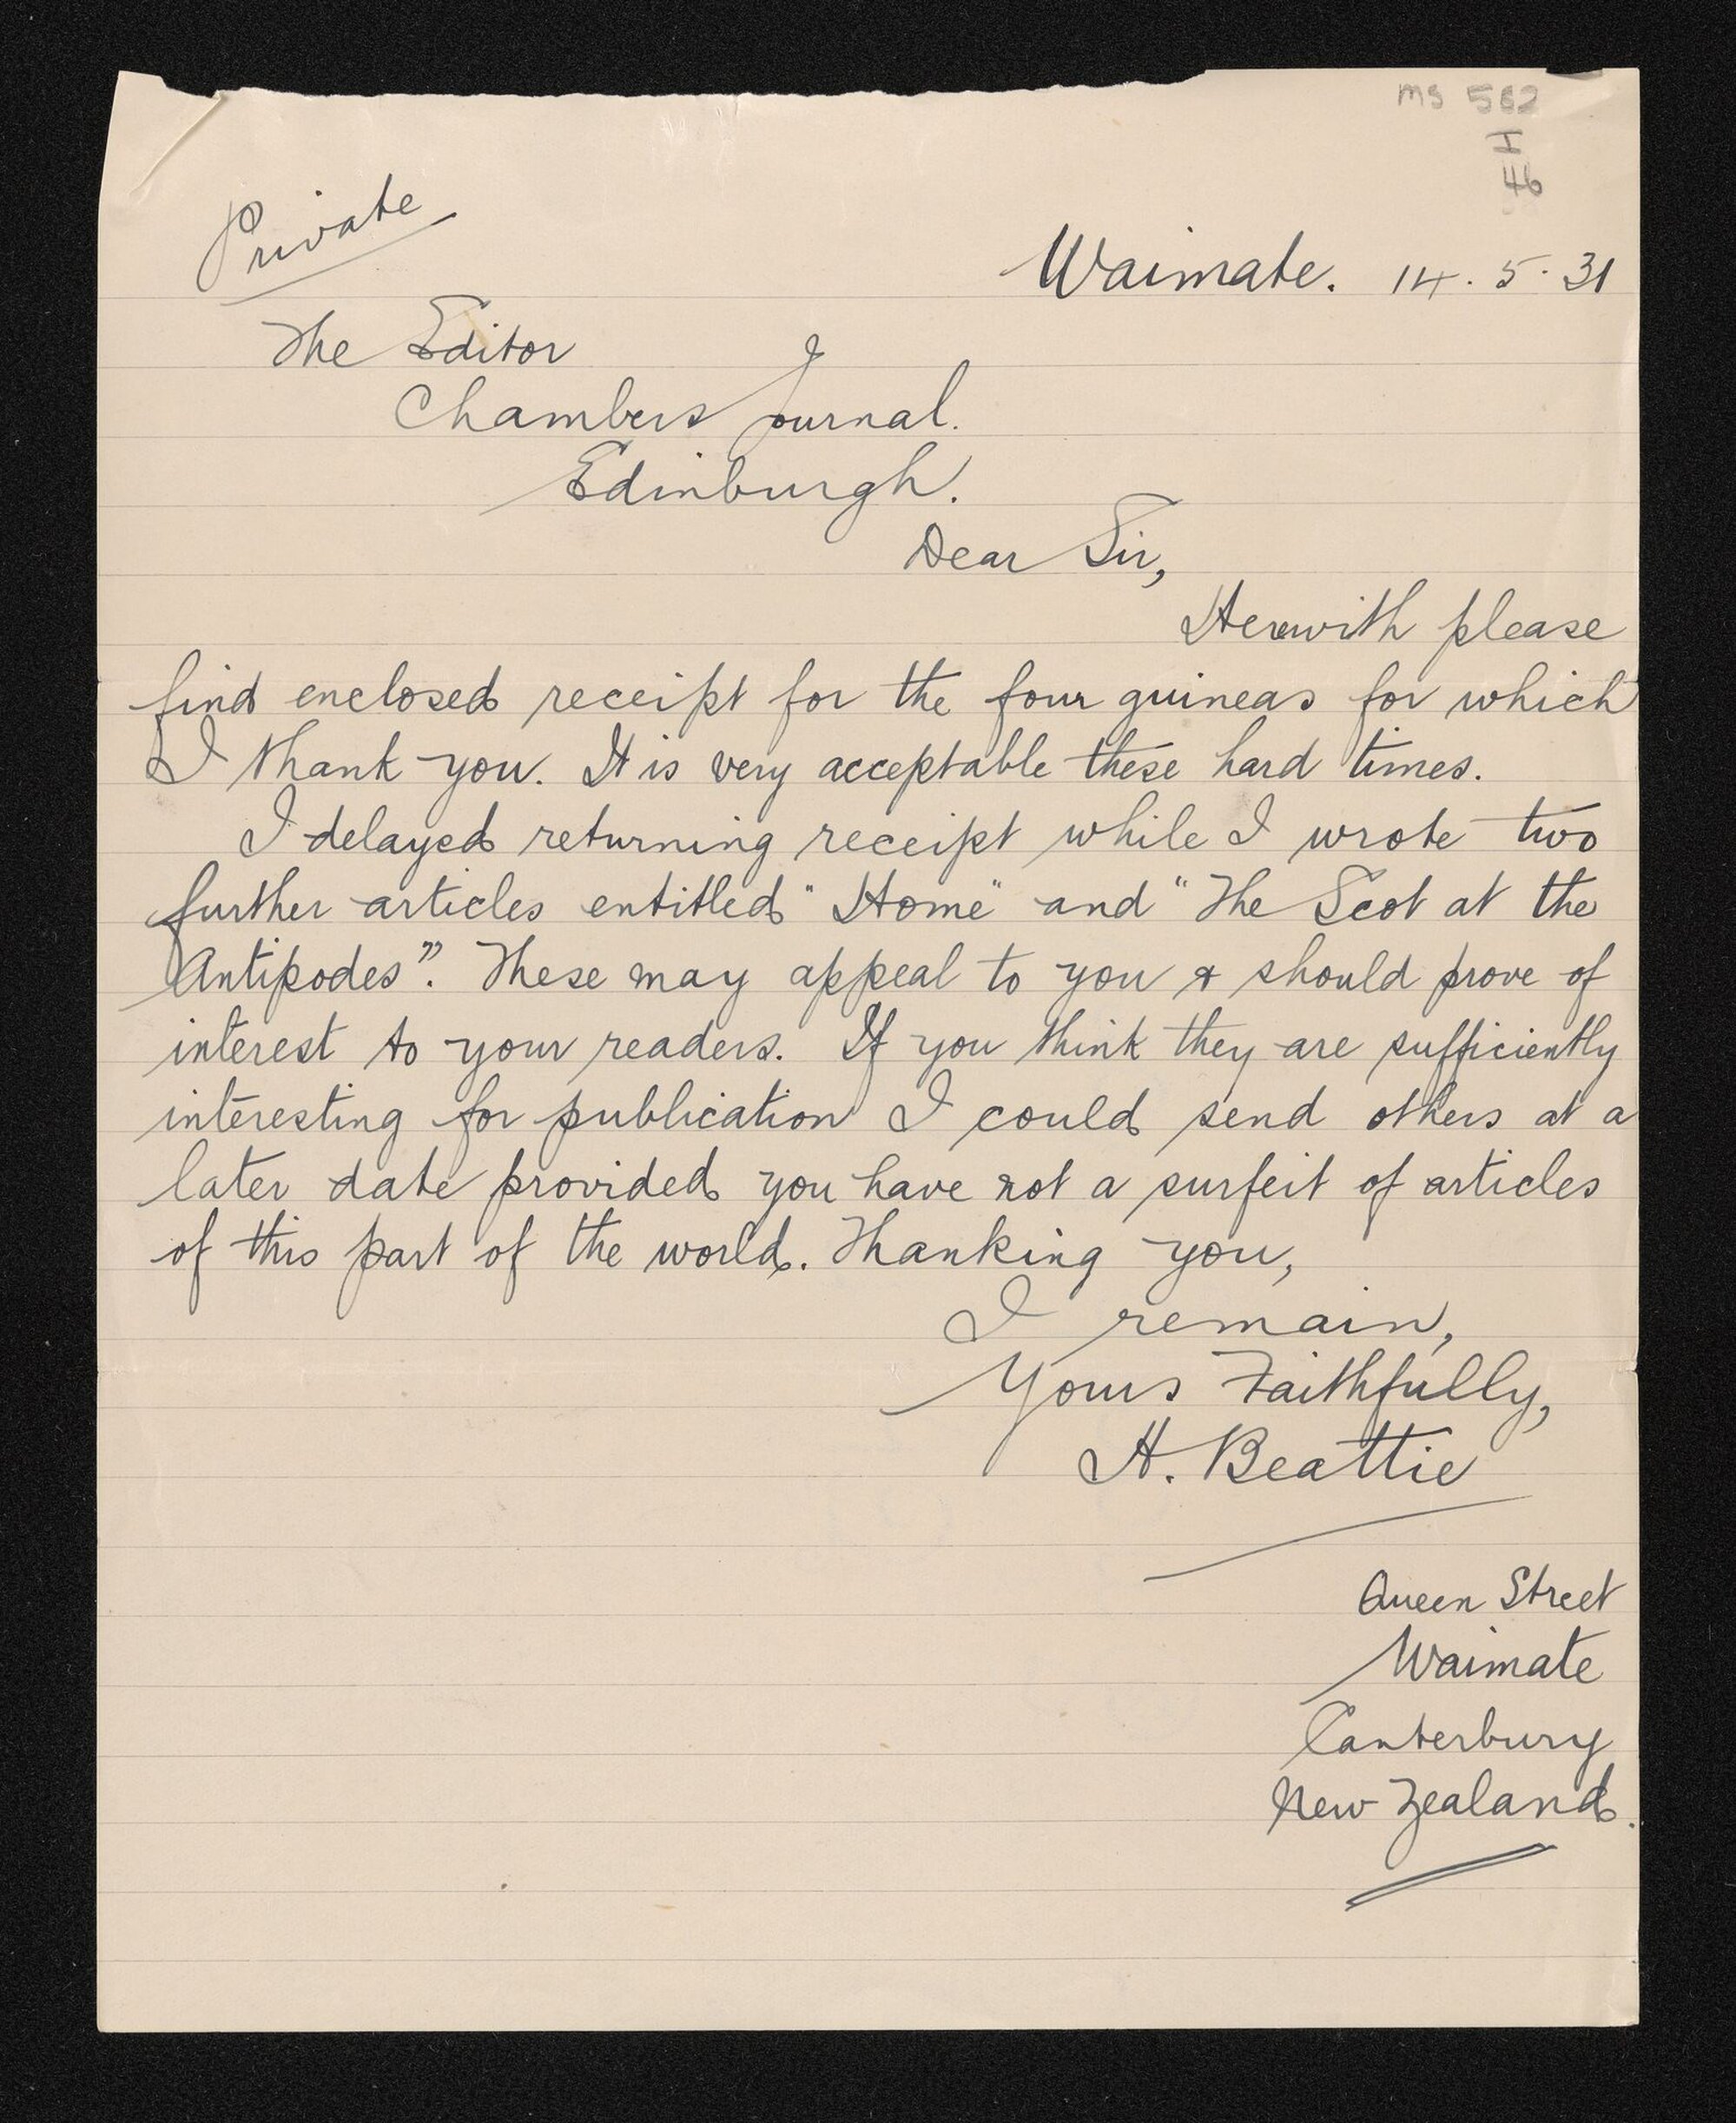 MS 582
I
46
Private
Waimate. 14.5.31
The Editor
Chambers Journal.
Edinburgh.
Dear Sir,
Herewith please
find enclosed receipt for the four guineas for which
I thank you. It is very acceptable these hard times.
I delayed returning receipt while I wrote two
further articles entitled "Home" and "The Scot at the
Antipodes". These may appeal to you & should prove of
interest to your readers. If you think they are sufficiently
interesting for publication I could send others at a
later date provided you have not a surfeit of articles
of this part of the world. Thanking you,
I remain,
Yours Faithfully,
H. Beattie
Queen Street
Waimate
Canterbury
New Zealand.